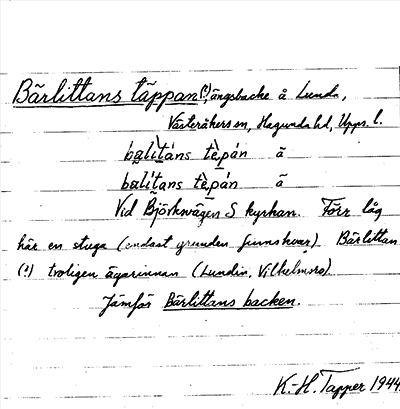 Bärlittans täppan(?), ängsbacke å Lunda,
Västeråkers sn, Hagunda hd, Upps. l.
balìtáns tὲpán ā
balítans tὲpán ā
Vid Björksvägen S kyrkan. Förr låg
här en stuga (endast grunden finns kvar). Bärlittan
(?) troligen ägarinnan (Lundin, Vilhelmsro).
Jämför Bärlittans backen.
K.-H. Tapper 1944